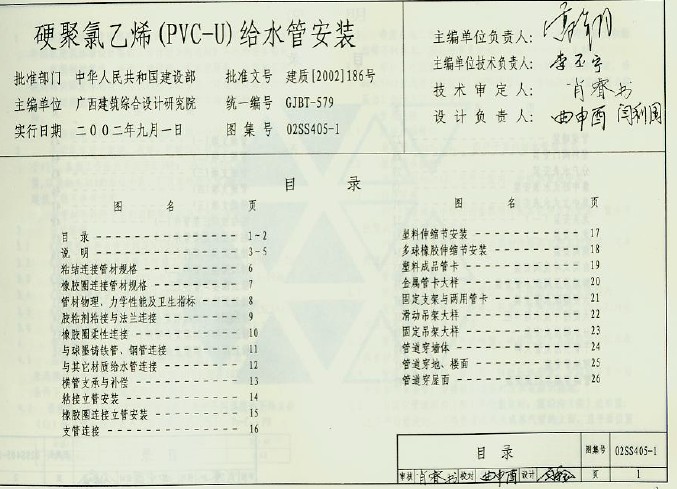 硬聚氯乙烯(PVC-U)给水管安装
批准部门 中华人民共和国建设部 批准文号 建质[2002]186号
主编单位 广西建筑综合设计研究院 统一编号 GJBT-579
实行日期 二00二年九月一日 图集号 02SS405-1
主编单位负责人:
主编单位技术负责人:
技术审定人: 肖睿书
设计负责人: 曲申酉 闫利国
目 录
图 名 页
目录 1-2
说明 3-5
粘结连接管材规格 6
橡胶圈连接管材规格 7
管材物理、力学性能及卫生指标 8
胶粘剂粘接与法兰连接 9
橡胶圈柔性连接 10
与球墨铸铁管、钢管连接 11
与其它材质给水管连接 12
横管支承与补偿 13
粘接立管安装 14
橡胶圈连接立管安装 15
支管连接 16
图 名 页
塑料伸缩节安装 17
多球橡胶伸缩节安装 18
塑料成品管卡 19
金属管卡大样 20
固定支架与两用管卡 21
滑动吊架大样 22
固定吊架大样 23
管道穿墙体 24
管道穿地、楼面 25
管道穿屋面 26
目录 图集号 02SS405-1
审核 肖睿书 校对 曲申酉 设计 页 1